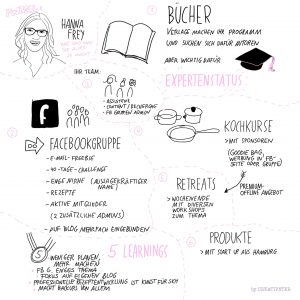 HANNA
FREY
BÜCHER
VERLAGE MACHEN IHR PROGRAMM
UND SUCHEN SICH DAFÜR AUTOREN
ABER WICHTIG DAFÜR
EXPERTENSTATUS
IHR TEAM:
• ASSISTENZ
• CONTENT / RECHERCHE
• FB GRUPPEN ADMIN
f
FACEBOOKGRUPPE
- E-MAIL-FREEBIE
- 40-TAGE-CHALLENGE
- ENGE NISCHE (AUSSAGEKRÄFTIGER
NAME)
- REZEPTE
- AKTIVE MITGLIEDER
(2 ZUSÄTZLICHE ADMINS)
- AUF BLOG MEHRFACH EINGEBUNDEN
KOCHKURSE
• MIT SPONSOREN
(GOODIE BAG,
WERBUNG IN FB-
SEITE ODER GRUPPE)
RETREATS
• WOCHENENDE
MIT DIVERSEN
WORKSHOPS
ZUM THEMA
PREMIUM-
OFFLINE ANGEBOT
PRODUKTE
• MIT START UP AUS HAMBURG
5 LEARNINGS
WENIGER PLANEN
MEHR MACHEN
FB G. ENGES THEMA
FOKUS AUF EIGENEN BLOG
MACHT BACKUPS VON ALLEM